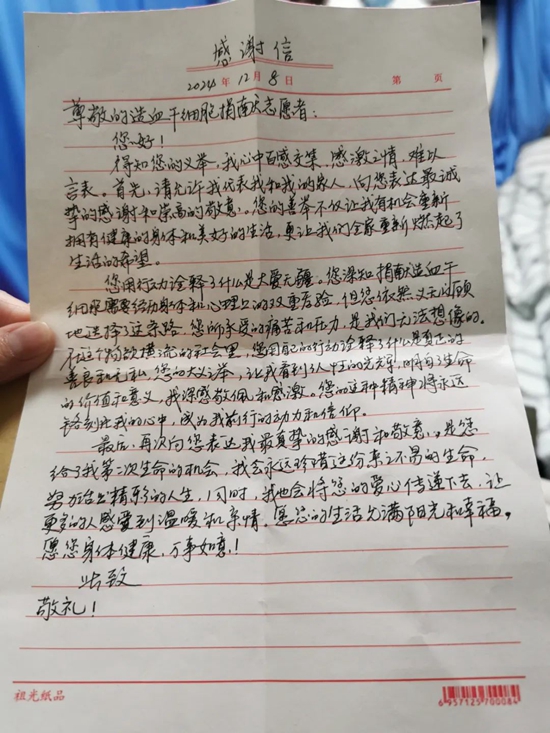 感谢信
2024年12月8日 第 页
尊敬的造血干细胞捐献志愿者：
您好！
得知您的义举，我心中百感交集，感激之情，难以
言表。首先，请允许我代表我和我的家人，向您表达最诚
挚的感谢和崇高的敬意。您的善举不仅让我有机会重新
拥有健康的身体和美好的生活，更让我们全家重新燃起了
生活的希望。
您用行动诠释了什么是大爱无疆。您深知捐献造血干
细胞需要经历身体和心理上的双重考验，但您依然义无反顾
地选择了这条路。您所承受的痛苦和压力，是我们无法想像的。
在这个物欲横流的社会里，您用自己的行动诠释了什么是真正的
善良和无私，您的大义之举，让我看到了人性的光辉，明白了生命
的价值和意义，我深感敬佩和感激。您的这种精神将永远
铭刻在我的心中，成为我前行的动力和信仰。
最后，再次向您表达我最真挚的感谢和敬意，是您
给了我第二次生命的机会，我会永远珍惜这份来之不易的生命，
努力活出精彩的人生，同时，我也会将您的爱心传递下去，让
更多的人感受到温暖和亲情。愿您的生活充满阳光和幸福，
愿您身体健康，万事如意！
此致
敬礼！
祖光纸品
6957125700084